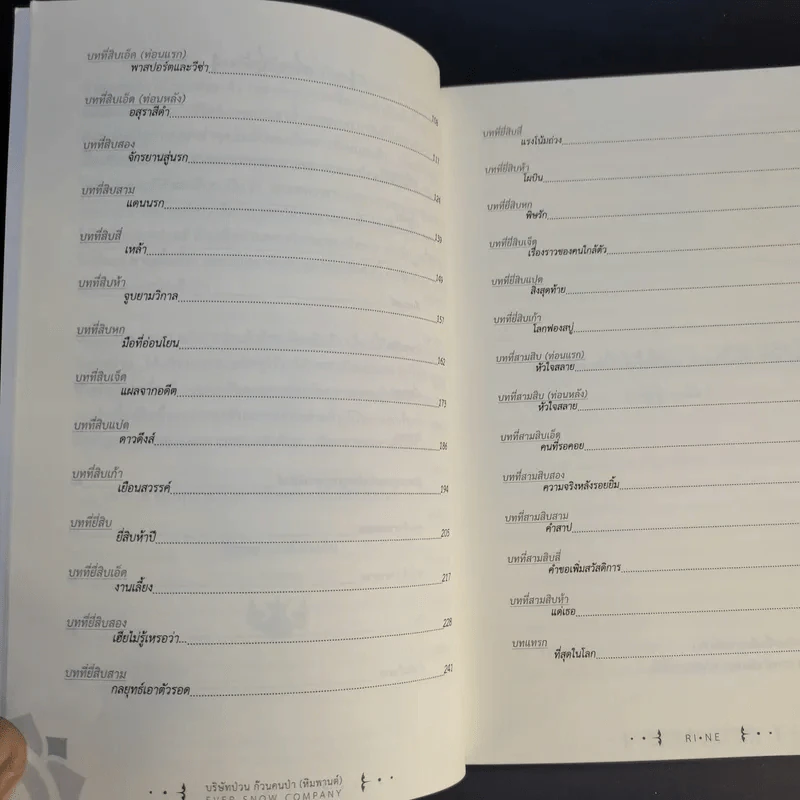 บทที่สิบเอ็ด (ท่อนแรก)
พาสปอร์ตและวีซ่า
บทที่สิบเอ็ด (ท่อนหลัง)
อสุราสีดำ
บทที่สิบสอง
จักรยานสู่นรก
บทที่สิบสาม
แดนนรก 130
บทที่สิบสี่
เหล้า 140
บทที่สิบห้า
จูบยามวิกาล 151
บทที่สิบหก
มือที่อ่อนโยน 162
บทที่สิบเจ็ด
แผลจากอดีต 173
บทที่สิบแปด
ดาวดึงส์ 186
บทที่สิบเก้า
เยือนสวรรค์ 194
บทที่ยี่สิบ
ยี่สิบห้าปี 205
บทที่ยี่สิบเอ็ด
งานเลี้ยง 217
บทที่ยี่สิบสอง
เฮียไม่รู้เหรอว่า... 228
บทที่ยี่สิบสาม
กลยุทธ์เอาตัวรอด 241
บริษัทป่วน ก๊วนคนป่า (หิมพานต์)
EVER SNOW COMPANY
บทที่ยี่สิบสี่
แรงโน้มถ่วง
บทที่ยี่สิบห้า
โผบิน
บทที่ยี่สิบหก
พิษรัก
บทที่ยี่สิบเจ็ด
เรื่องราวของคนใกล้ตัว
บทที่ยี่สิบแปด
สิ่งสุดท้าย
บทที่ยี่สิบเก้า
โลกฟองสบู่
บทที่สามสิบ (ท่อนแรก)
หัวใจสลาย
บทที่สามสิบ (ท่อนหลัง)
หัวใจสลาย
บทที่สามสิบเอ็ด
คนที่รอคอย
บทที่สามสิบสอง
ความจริงหลังรอยยิ้ม
บทที่สามสิบสาม
คำสาป
บทที่สามสิบสี่
คำขอเพิ่มสวัสดิการ
บทที่สามสิบห้า
แด่เธอ
บทแทรก
ที่สุดในโลก
RI•NE